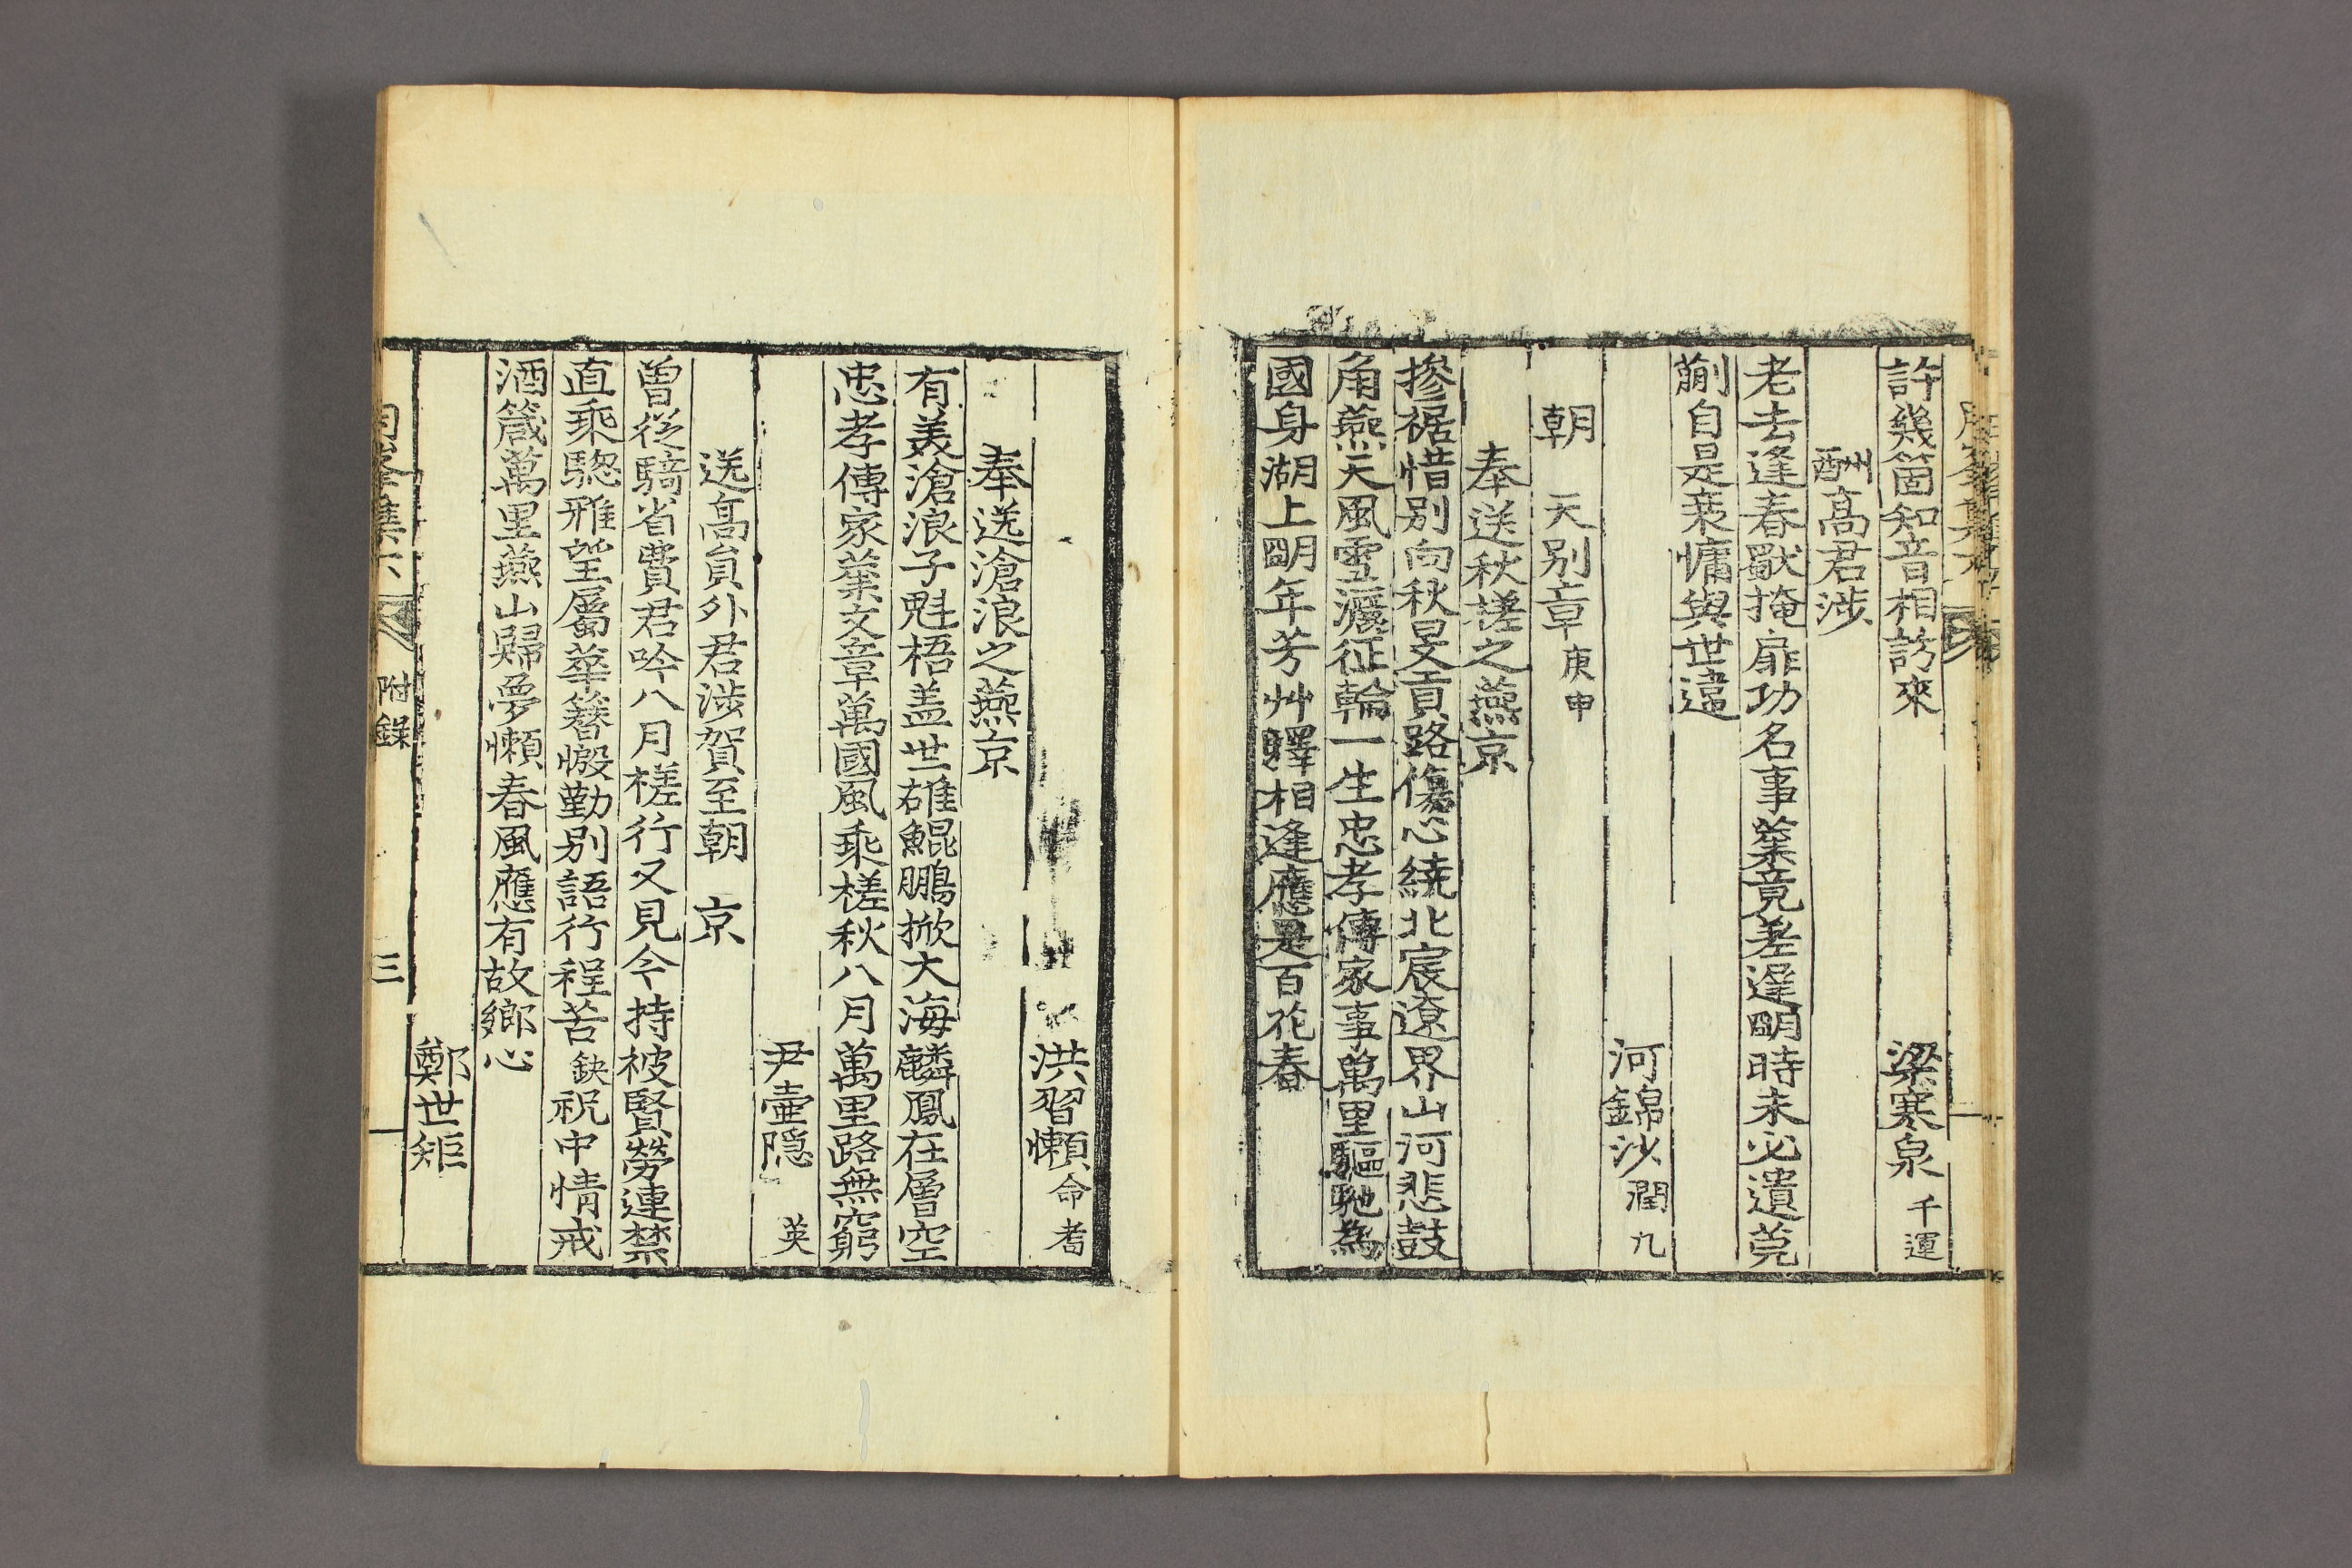 許幾箇知音相訪來
梁寒泉 千運
酬高君渉
老去逢春獸掩扉功名事業竟差遲明時未必遺菀
蒯自是踈慵與世違
河錦沙 潤九
朝 天別章 庚申
奉送秋槎之燕京
摻裾惜別向秋旻貢路傷心繞北宸遼界山河悲鼓
角燕天風雪濕征輪一生忠孝傳家事萬里驅馳為
國身湖上明年芳艸驛相逢應是百花春
洪習懶 命耉
奉送滄浪之燕京
有美滄浪子魁梧盖世雄鯤鵬掀大海麟鳳在層空
忠孝傳家業文章萬國風乘槎秋八月萬里路無窮
尹壷隠 英
送高貟外君渉賀至朝 京
曽從騎省費君吟八月槎行又見今持被賢勞連禁
直乘驄雅望屬華簪慇勤別語行程苦 缺 祝中情戒
酒箴萬里燕山歸夢懶春風應有故鄉心
鄭世矩
集六 附録 三